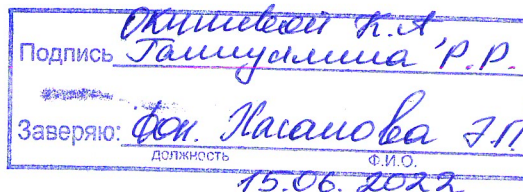 Окишевой К.А,
Подпись Галиуллина Р.Р.
Заверяю: Хасанова Э.П
должность Ф.И.О.
15.06.2022